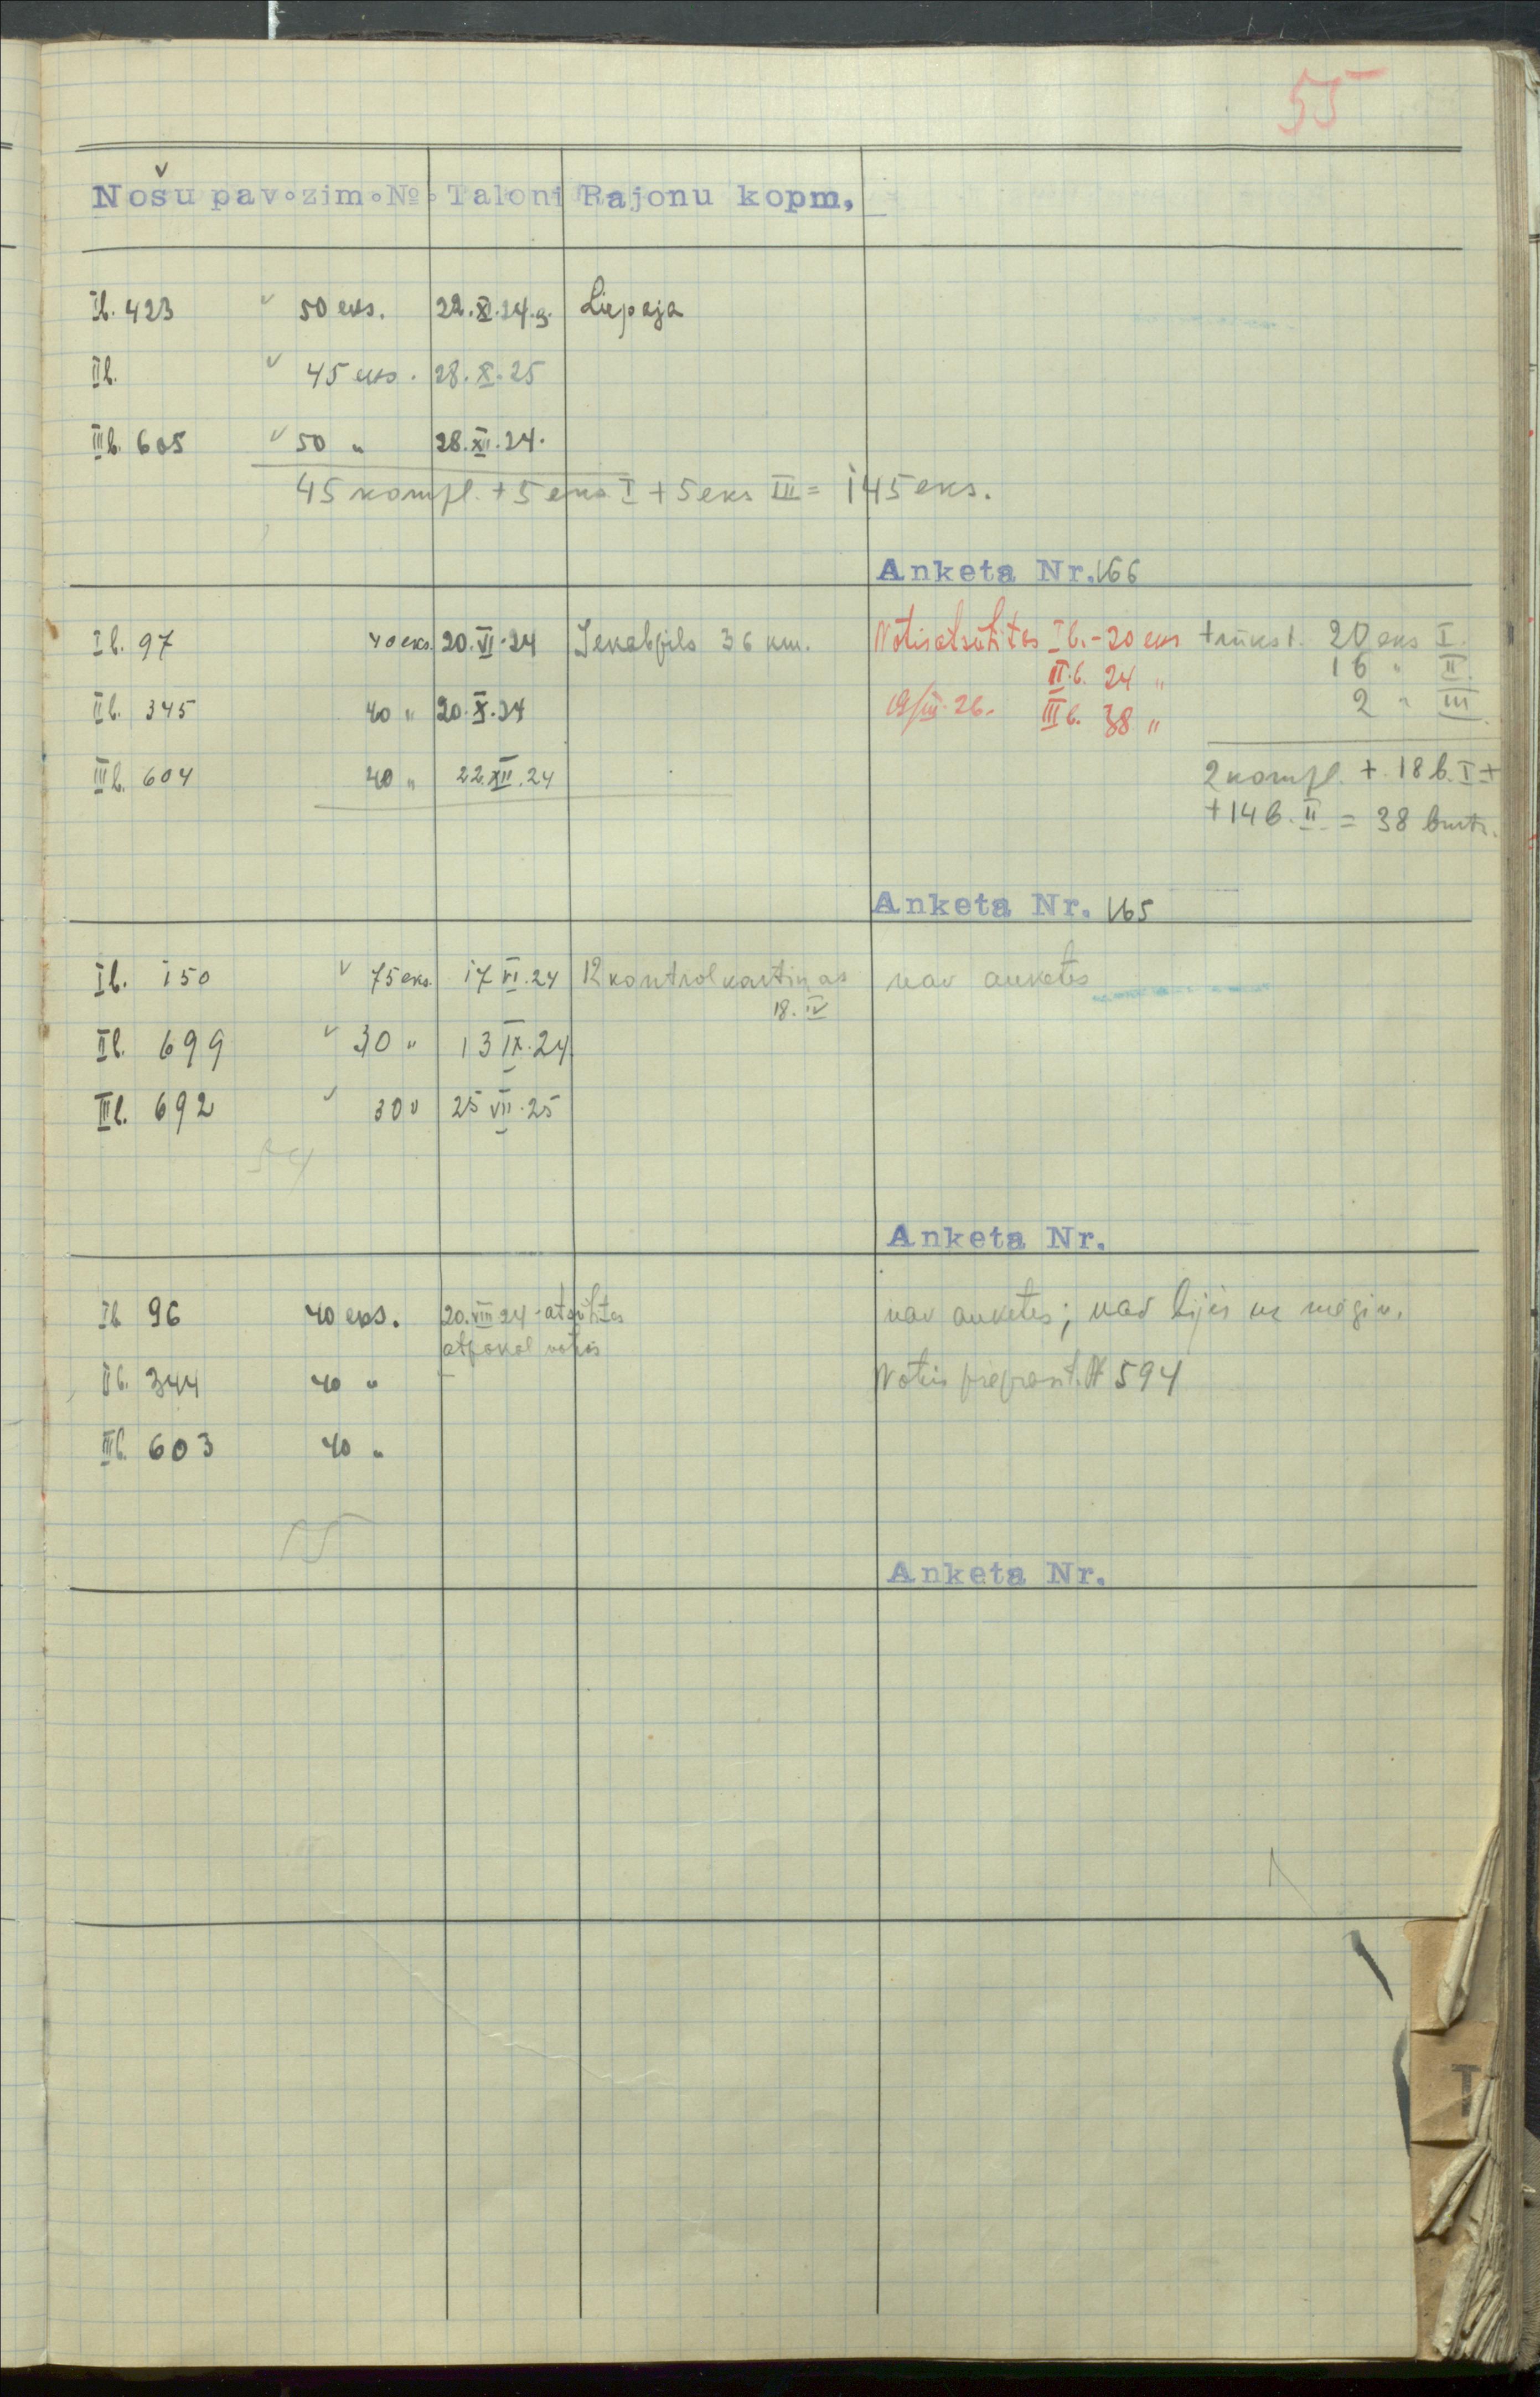 55
Nošu pav.zim.№. Taloni Rajonu kopm,
I b. 423 v 50 eks. 22.XI.24.g. Liepaja
II b. v 45 eks. 28.X.25
III b. 605 v 50 " 28.XII.24.
45 kompl. + 5 eks I + 5 eks III = 145 eks.
Anketa Nr. 166
I b. 97 40 eks. 20.VI.24 Jekabpils 36 km. Notis atsūtītas I b. - 20 eks trūkst. 20 eks I.
II b. 24 " 16 " II.
II b. 345 40 " 20.X.24 19/III.26. III b. 38 " 2 " III.
III b. 604 40 " 22.XII.24 2 kompl. + 18 b. I +
+ 14 b. II = 38 burtn.
Anketa Nr. 165
I b. 150 v 75 eks. 17 VI.24 12 kontrolkartiņas nav anketes
18. IV
II b. 699 v 30 " 13 IX.24
III b. 692 v 30 " 25 VII.25
54
Anketa Nr.
I b 96 40 eks. 20.VIII 24 - atsūtītas nav anketes; nav bijis uz mēģin.
atpakaļ notis
II b. 344 40 " - Notis pieprasīt. № 594
III b. 603 40 "
55
Anketa Nr.
T